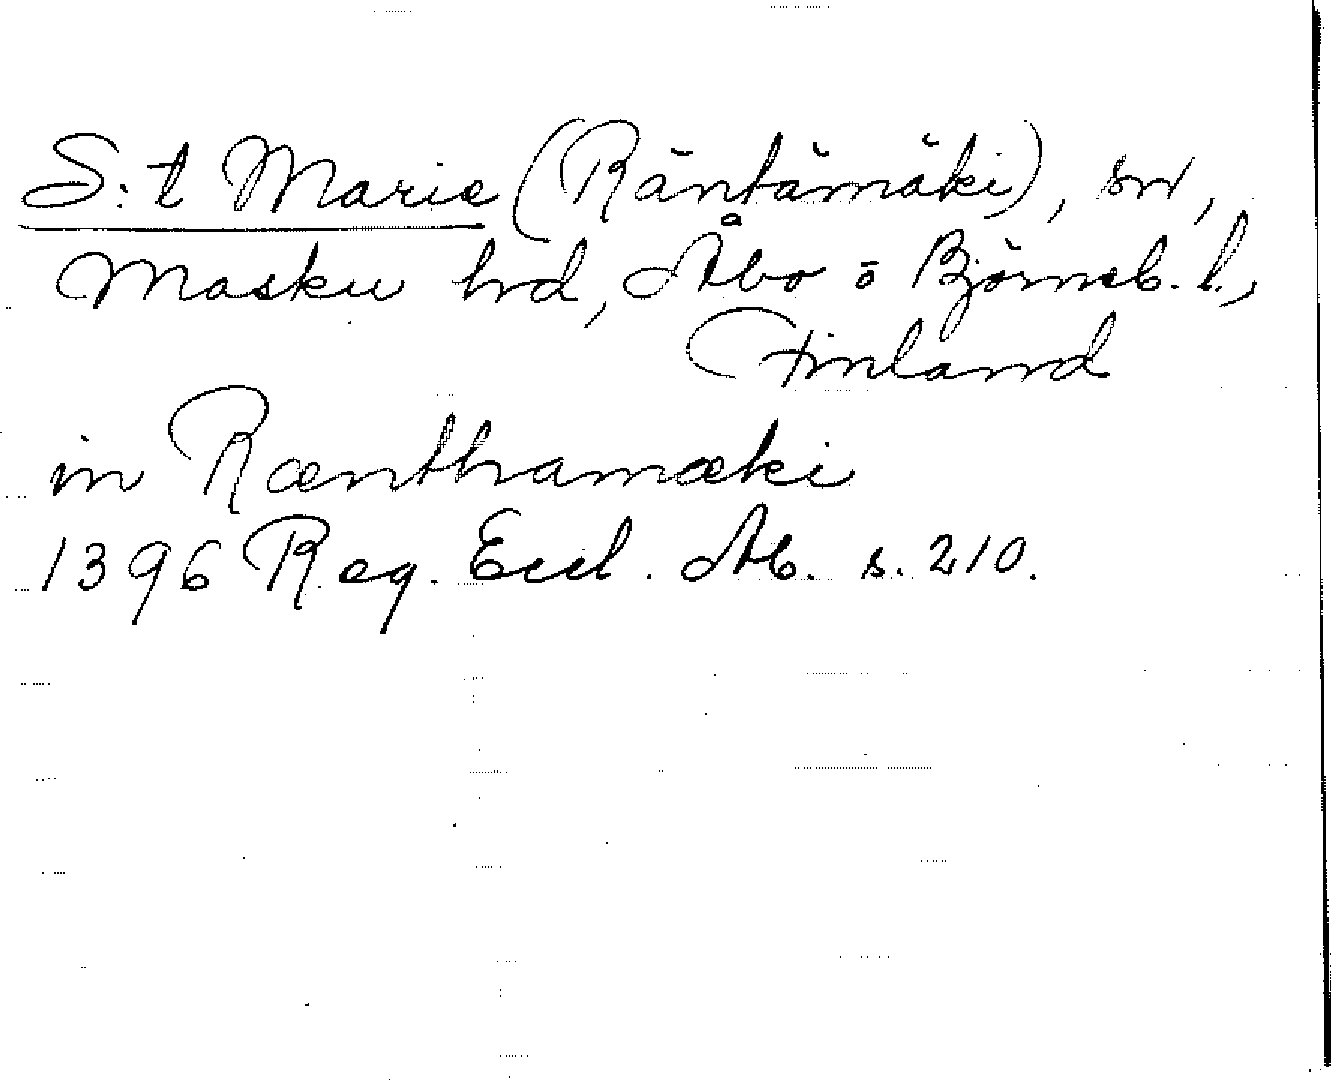 S:t Marie (Räntämäki), sn,
Masku hd, Åbo o Björneb. l.,
Finland
in Rænthamæki
1396 Reg. Eccl. Ab. s. 210.